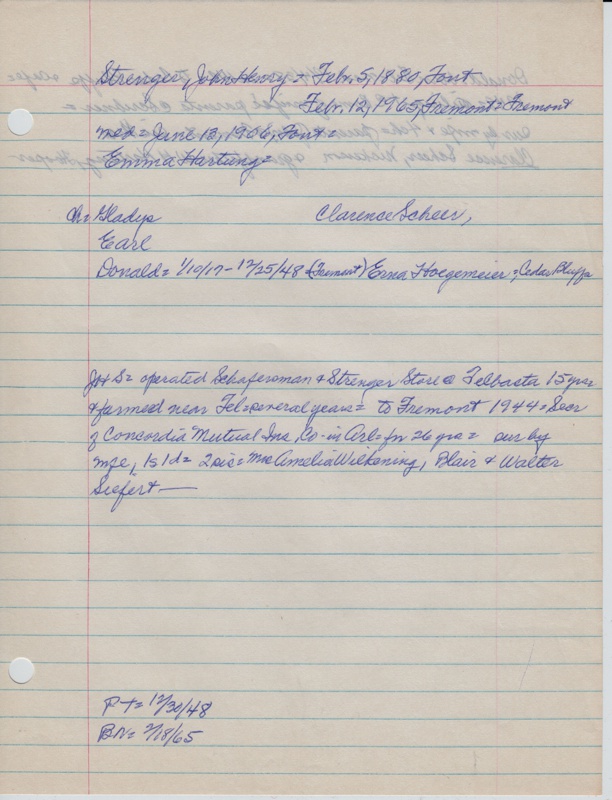 Strenger, John Henry = Febr. 5, 1880, Font
Febr. 12, 1965, Fremont = Fremont
med = June 13, 1906, Font =
Emma Hartung =
Ch: Gladys Clarence Scheer,
Earl
Donald = 1/10/17 - 12/25/48 = (Fremont) Erna Hoegemeier =, Cedar Bluffs
JHS = operated Schafersman & Strenger Store @ Telbasta 15 yrs =
& farmed near Tel = several years = to Fremont 1944 = Secr
of Concordia Mutual Ins, Co - in Arl = for 26 yrs = sur by
wife, 1s 1d = 2 sis = Mrs Amelia Wilkening, Blair & Walter
Siefert —
PT = 12/30/48
BN = 2/18/65